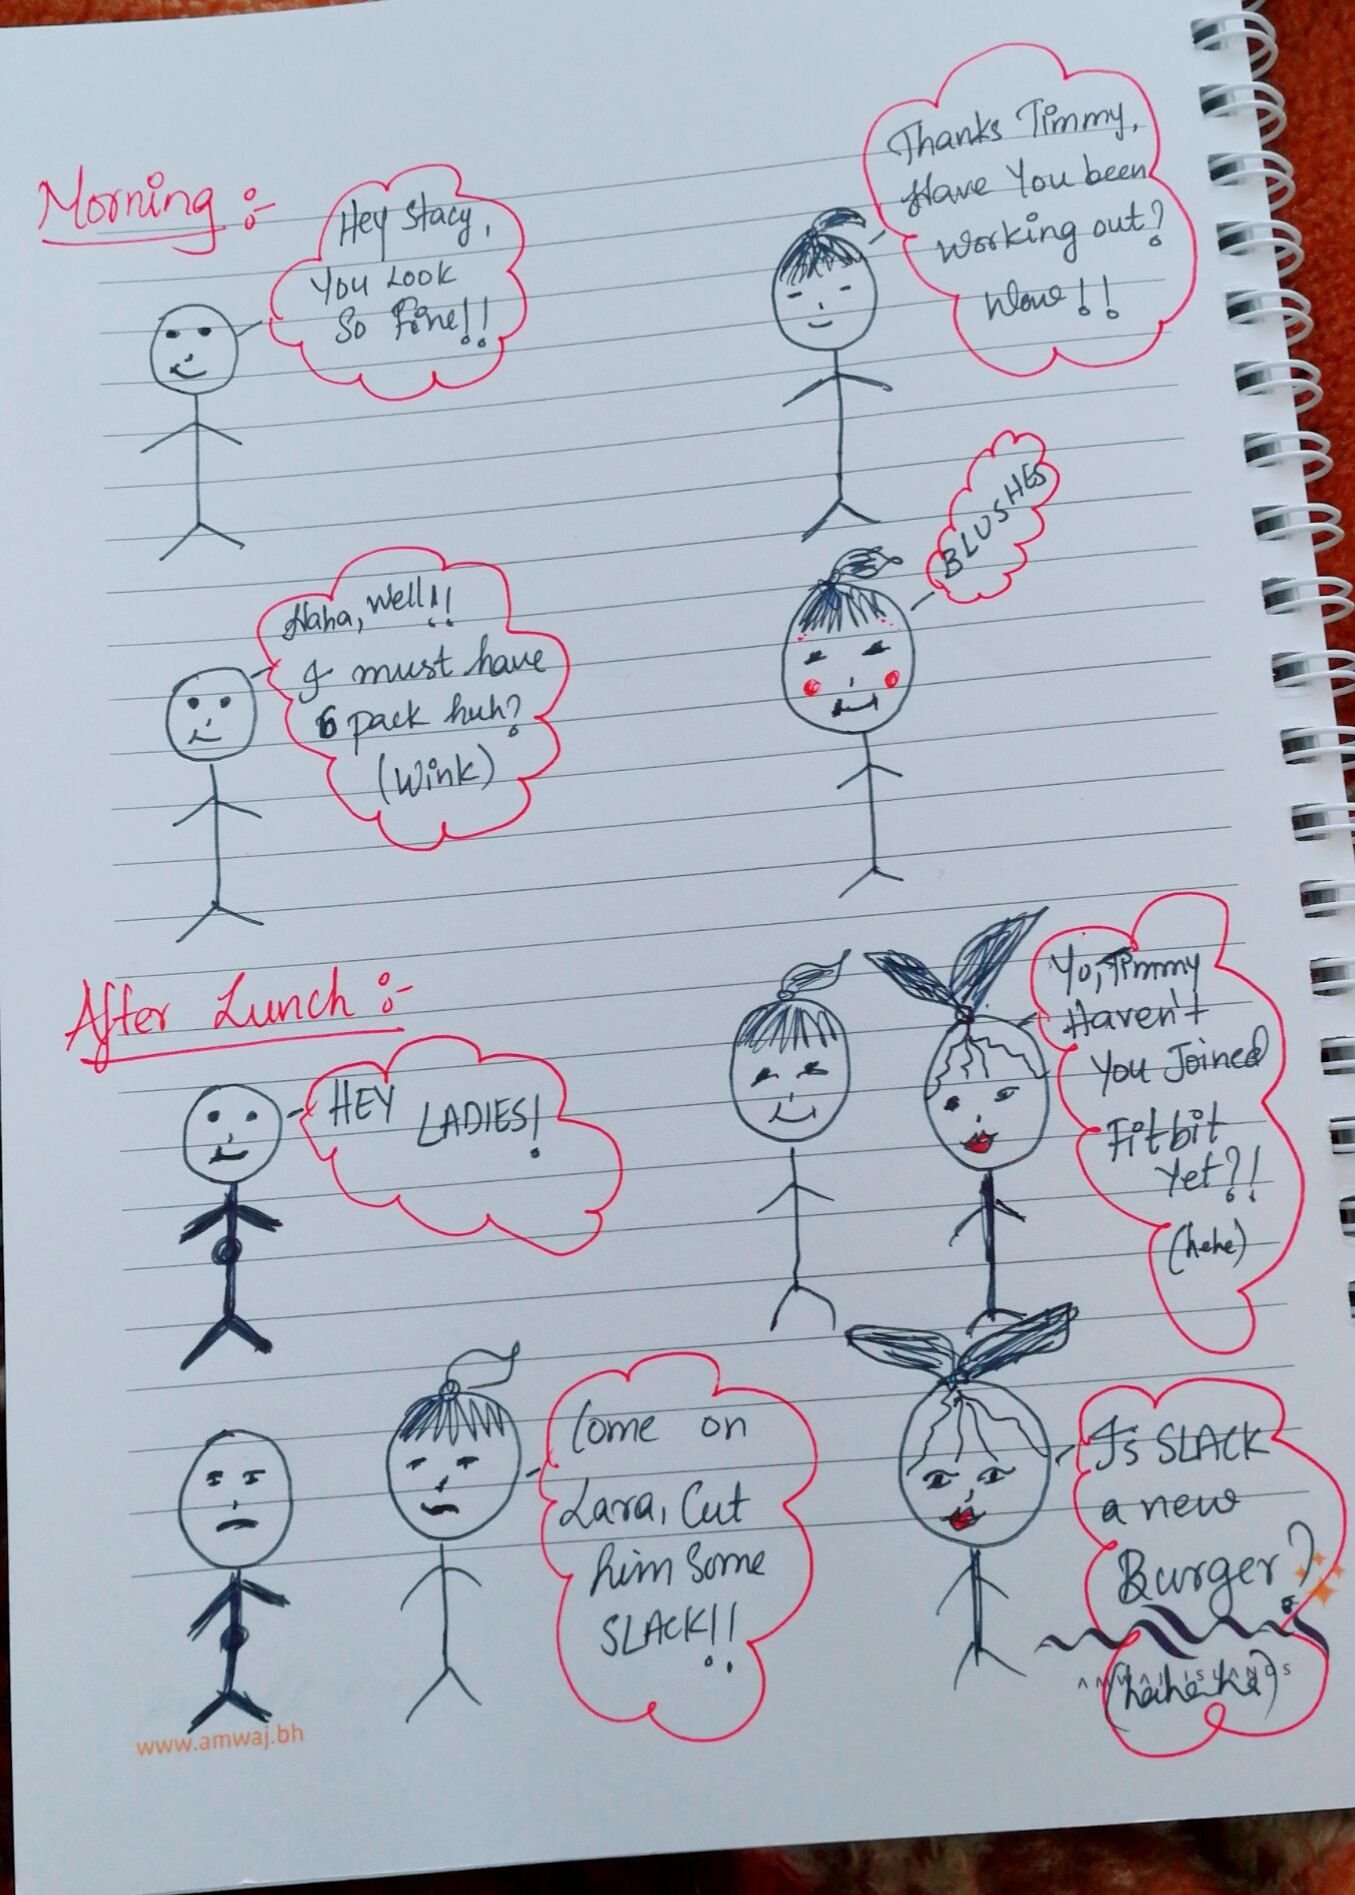 Morning :-
Hey Stacy,
You Look
So Fine!!
Thanks Timmy,
Have You been
Working out?
Wow!!
Haha, Well!!
I must have
6 pack huh?
(Wink)
BLUSHES
After Lunch :-
HEY LADIES!
Yo, Timmy
Haven't
You Joined
Fitbit
Yet?!
(hehe)
Come on
Lara, Cut
him Some
SLACK!!
Is SLACK
a new
Burger?
(hahaha)
AMWAJ ISLANDS
www.amwaj.bh